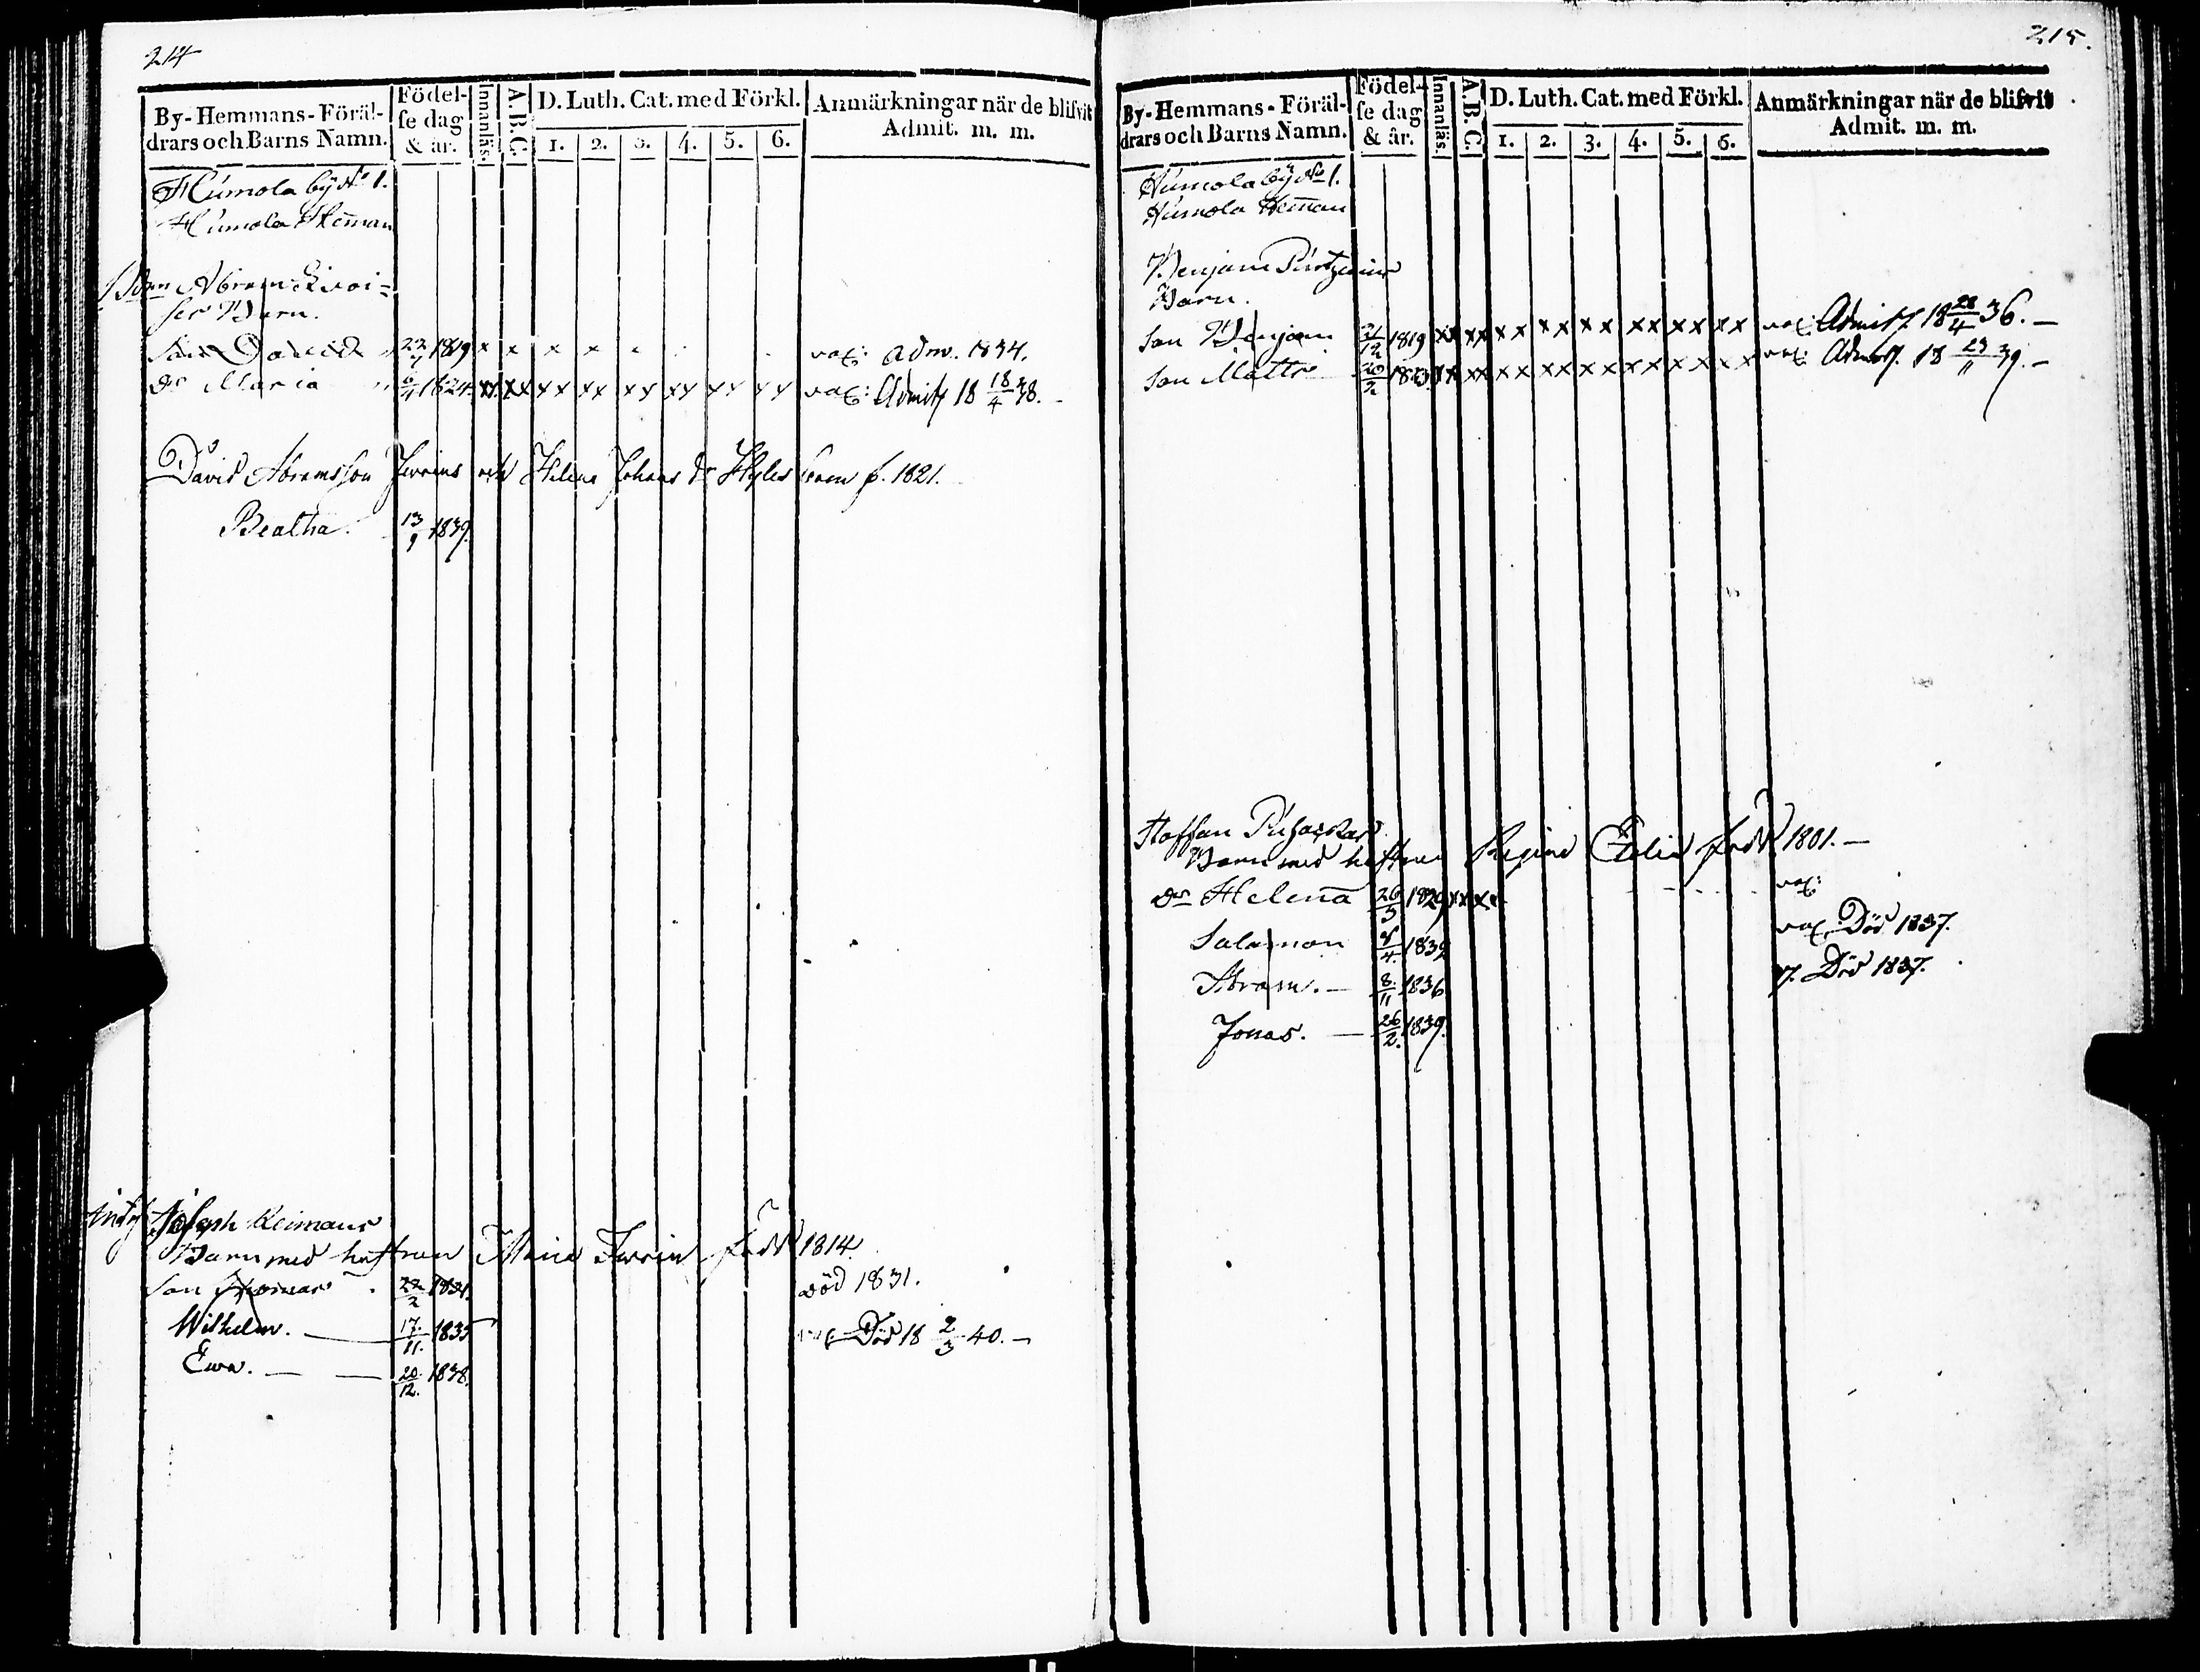 214
By-Hemmans-Föräl-
drars och Barns Namn.
Födel-
se dag
& år.
Innanläs.
A.B.C.
D. Luth. Cat. med Förkl.
1. 2. 3. 4. 5. 6.
Anmärkningar när de blifvit
Admit. m. m.
Humola by No 1.
Humola Heman
Abram
Barn.
Son David 22/7 1819 x x x x vac: adm. 1834.
Dr Maria 6/4 1824 xx xx xx xx xx xx xx xx vac: Admitt 18 18/4 38.
David Abramsson och Helena Johans dr f. 1821.
Beatha. 13/9 1839.
Joseph Reimans
Barn med hustrun Maria född 1814.
Son Thomas 22/2 1831. död 1831.
Wilhelm. 17/11. 1835 Död 18 2/3 40.
Ewa. 20/12. 1838.
215.
By-Hemmans-Föräl-
drars och Barns Namn.
Födel-
se dag
& år.
Innanläs.
A.B.C.
D. Luth. Cat. med Förkl.
1. 2. 3. 4. 5. 6.
Anmärkningar när de blifvit
Admit. m. m.
Humola by No 1.
Humola Heman
Benjam
Barn.
Son Benjam 21/12 1819 xx xx xx xx xx xx xx xx vac: Admitt 18 28/4 36.
Son Matts 20/2 1823 xx xx xx xx xx xx xx xx vac: Admitt. 18 23/11 39.
Staffan
Barn med hustrun Regina född 1801.
Dr Helena 26/3 1829 xx xx vac:
Salamon 4. 1832 vac. Död 1837.
Abram. 8/11 1836 Död 1837.
Jonas. 26/2. 1839.